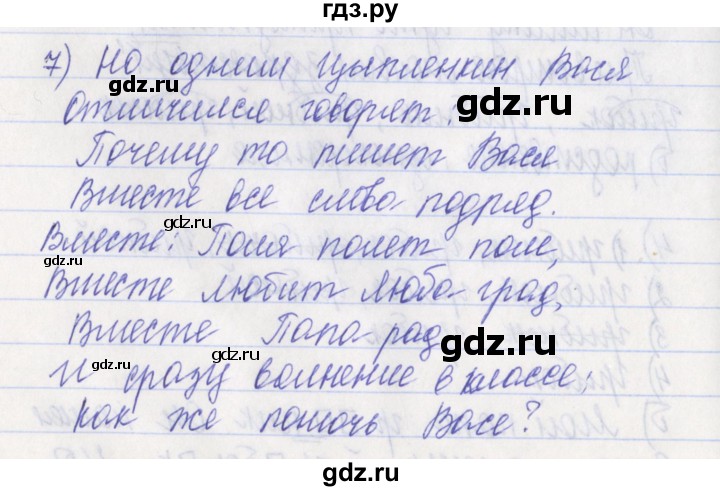 гдз.ру
7) Но одним Цыпленкин Вася
отличился говорят.
gdz.ru
gdz.ru
Почему то пишет Вася
Вместе все слова подряд.
gdz.ru
Вместе: Поля полет поле,
gdz.ru
Вместе любит Люба град,
gdz.ru
Вместе Папа рад
gdz.ru
gdz.ru
И сразу волнение в классе,
gdz.ru
как же помочь Васе?
gdz.ru
gdz.ru